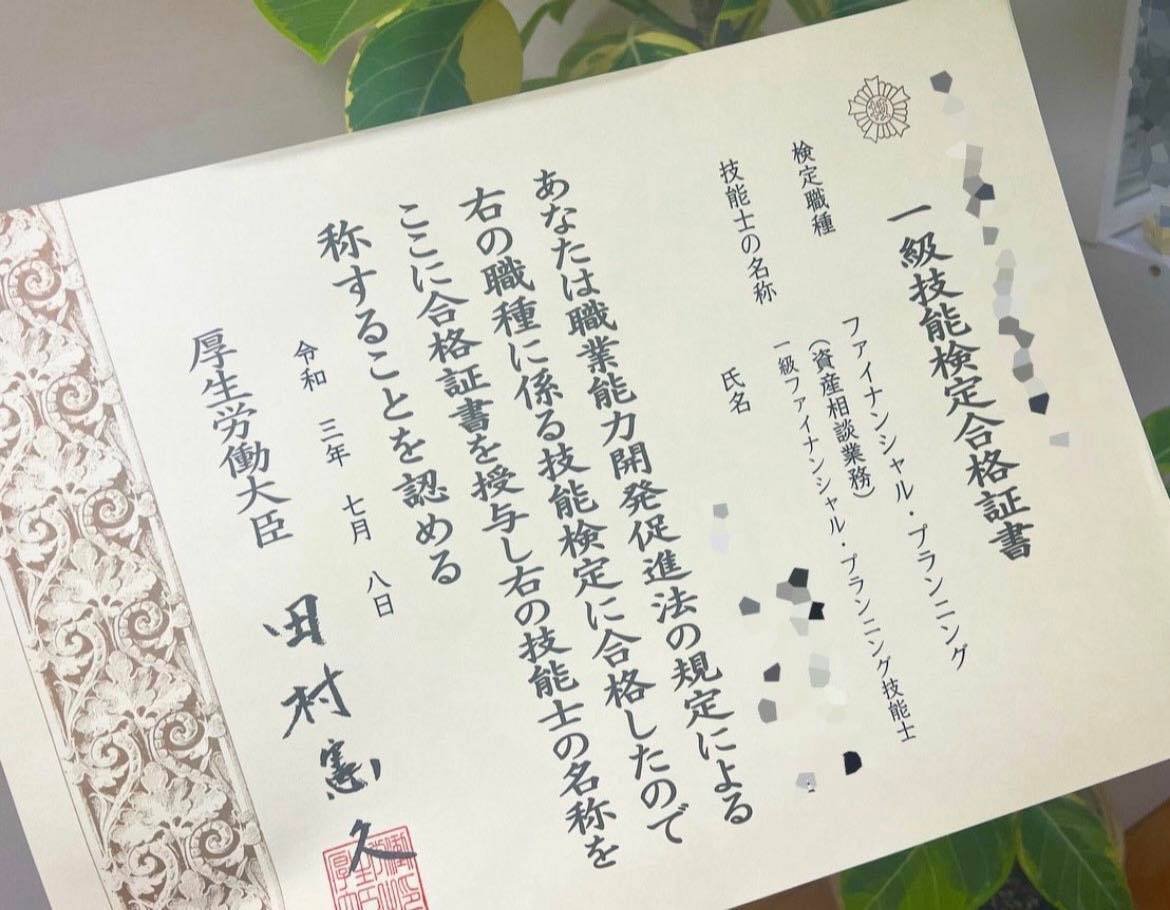 一級技能検定合格証書
検定職種
ファイナンシャル・プランニング
(資産相談業務)
技能士の名称
一級ファイナンシャル・プランニング技能士
氏名
あなたは職業能力開発促進法の規定による
右の職種に係る技能検定に合格したので
ここに合格証書を授与し右の技能士の名称を
称することを認める
令和 三年 七月 八日
厚生労働大臣 田村憲久